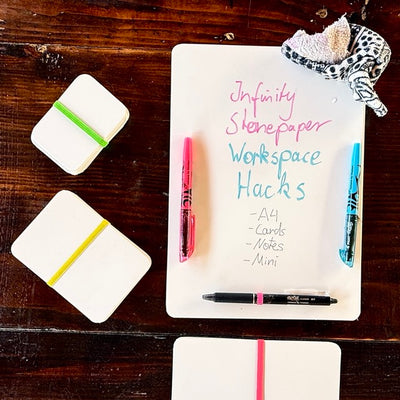 Infinity
Stonepaper
Workspace
Hacks
- A4
- Cards
- Notes
- Mini